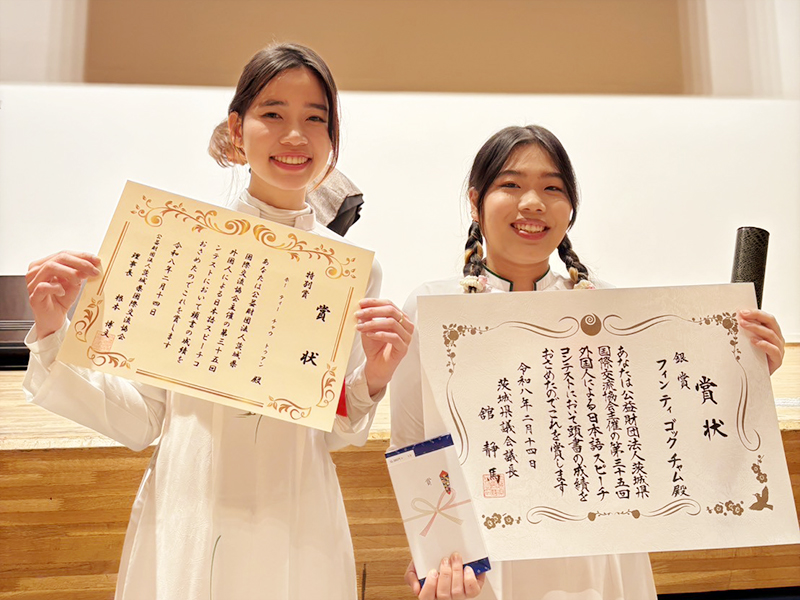 賞状
特別賞
ホー ティー キャウ トゥアン 殿
あなたは公益財団法人茨城県
国際交流協会主催の第三十五回
外国人による日本語スピーチコ
ンテストにおいて頭書の成績を
おさめたのでこれを賞します
令和八年二月十四日
公益財団法人茨城県国際交流協会
理事長 根本
賞状
銀賞
フィン ティ ゴック チャム 殿
あなたは公益財団法人茨城県
国際交流協会主催の第三十五回
外国人による日本語スピーチ
コンテストにおいて頭書の成績を
おさめたのでこれを賞します
令和八年二月十四日
茨城県議会議長
舘 静馬
賞